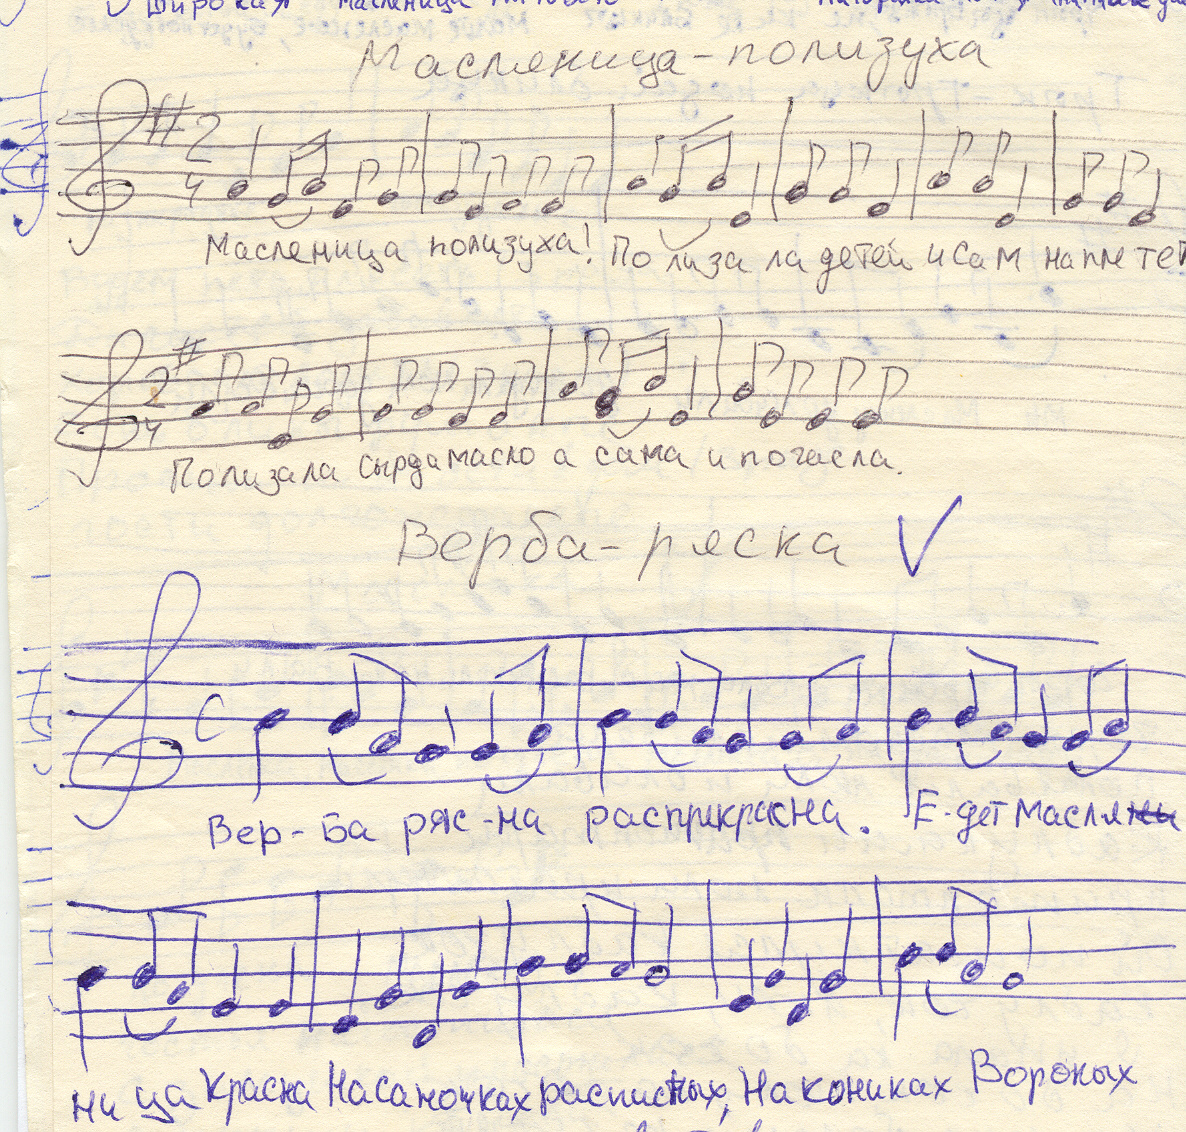 Широкая масленица
Масленица-полизуха
2
4
Масленица полизуха! По лиза ла детей и сам на пле тей
2
4
Полизала сыр да масло а сама и погасла.
Верба-ряска
C
Вер-ба ряс-на распрекрасна. Е-дет масля
ни ца красна На саночках расписных, На кониках Вороных